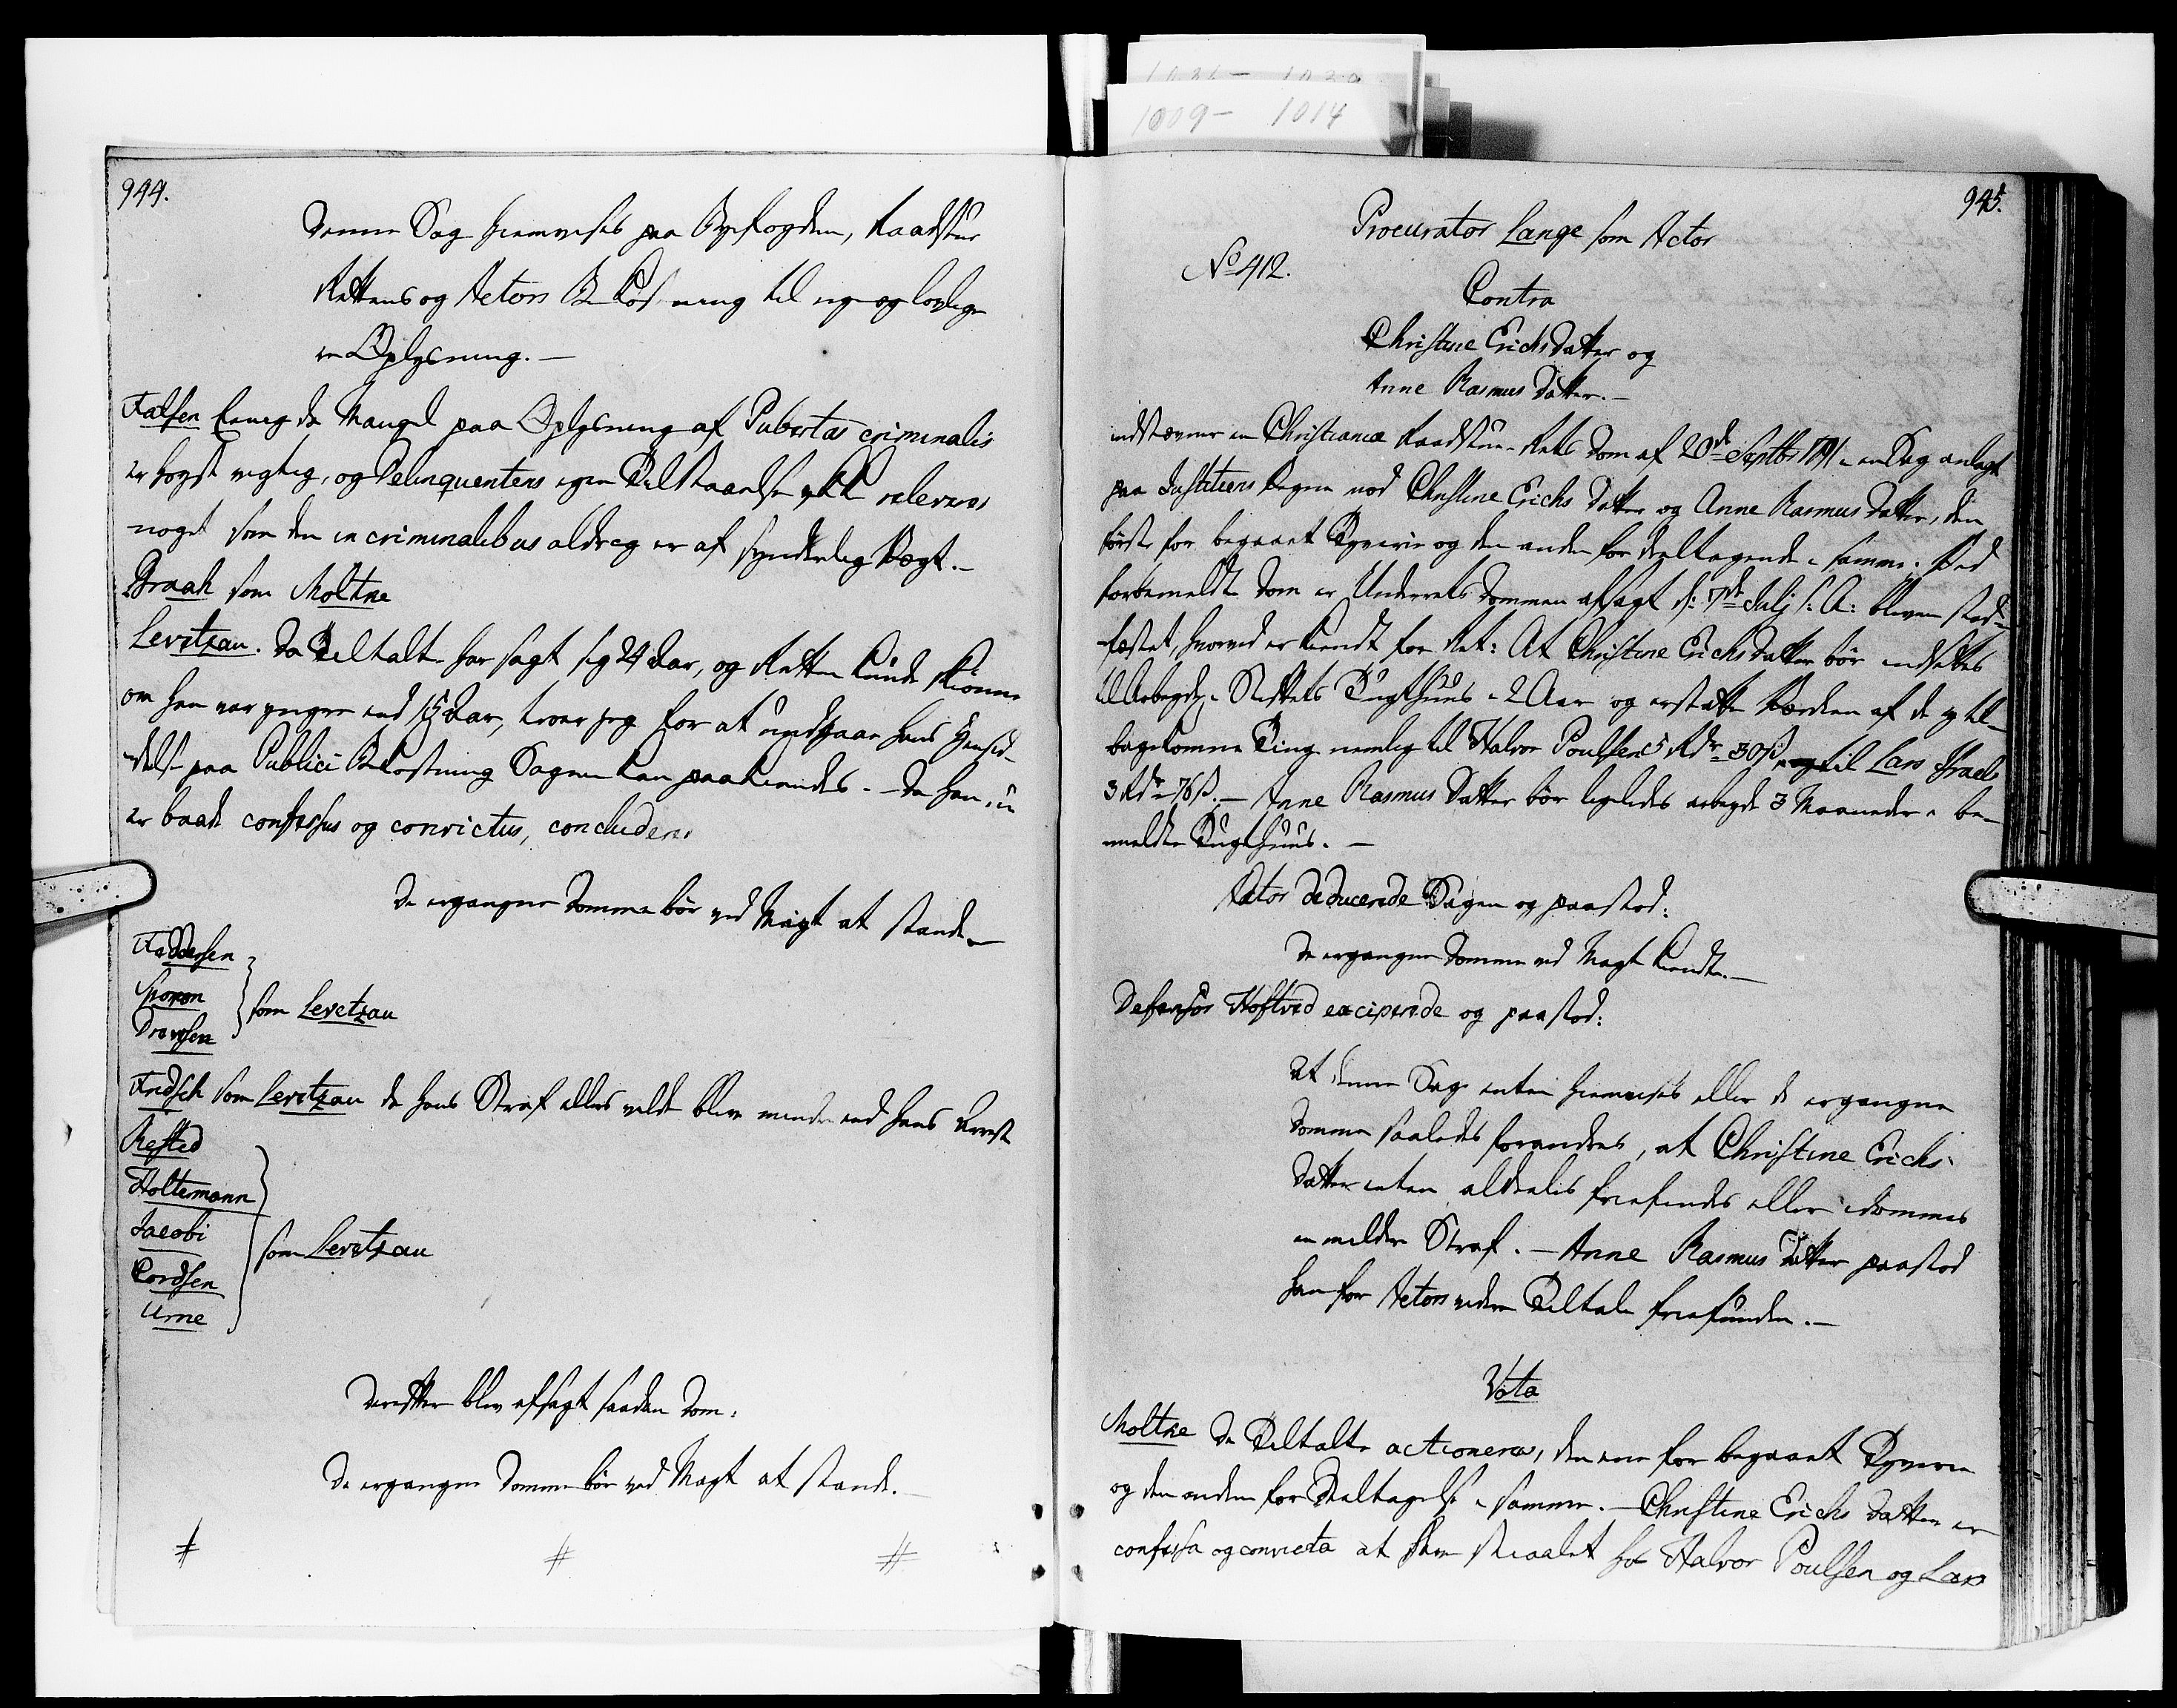 1009- 1014
944.
Denne Sag hiemvises paa Byefogdens, Raadstue
Rettens og Actors Bekostning til nye og lovlige
re Oplysning.—
Falsen Eenig da Mangel paa Oplysning af Pubertas criminalis
er høyst vigtig, og Delinquentens egen Tilstaaelse ikke releverer
noget som den in criminalibus aldrig er af synderlig Vægt.—
Braah som Moltke
Levetzau. Da Tiltalte har sagt sig 24 Aar, og Retten kunde skiønne
om han var yngre end 15 Aar, troer jeg for at undgaae hans Hensid-
delse paa Publici Bekostning Sagen kan paakiendes. – Da han nu
er baade confessus og convictus, concluderer
De ergangne Domme bør ved Magt at stande—
Feddersen
Sporon
Drewsen
som Levetzau
Fridsch som Levetzau da hans Straf ellers vilde blive mindre end hans Arrest
Refsted
Holtermann
Jacobi
Cordsen
Urne
som Levetzau
Derefter blev afsagt saadan Dom:
De ergangne Domme bør ved Magt at stande.—
945.
Procurator Lange som Actor
No 412.
Contra
Christine Erichsdatter og
Anne Rasmus Datter.—
indstævner en Christiania Raadstue-Rets Dom af 20de Septbr 1791 i en Sag anlagt
paa Justitiens Vegne mod Christine Erichs Datter og Anne Rasmus Datter, den
første for begaaet Tyverie og den anden for deeltagende i samme. Ved
forbemeldte Dom er Underrets Dommen afsagt d: 7de Julj s: A: bleven stad-
fæstet, hvorved er kiendt for Ret: At Christine Erichsdatter bør indsættes
til Arbeyde i Stiftets Tugthuus i 2 Aar og erstatte Værdien af de ey til-
bagekomne Ting nemlig til Halvor Poulsen 5 Rdr 30 s og til Lars Iffraels
3 Rdr 76 s.— Anne Rasmus Datter bør ligeledes arbeyde 3 Maaneder i be-
meldte Tugthuus.—
Actor deducerede Sagen og paastod:
De ergangne Domme ved Magt kiendte.—
Defensor Hoftved exciperede og paastod:
At denne Sag enten hiemvises eller de ergangne
Domme saaledes forandres, at Christine Erichs
Datter enten aldeeles friefindes eller idømmes
en mildere Straf.— Anne Rasmus Datter paastod
han for Actors videre Tiltale friefunden.—
Vota
Moltke De Tiltalte actioneres, den ene for begaaet Tyverie
og den anden for Deeltagelse i samme.— Christine Erichs Datter er
confessa og convicta at have stiaalet hos Halvor Poulsen og Lars